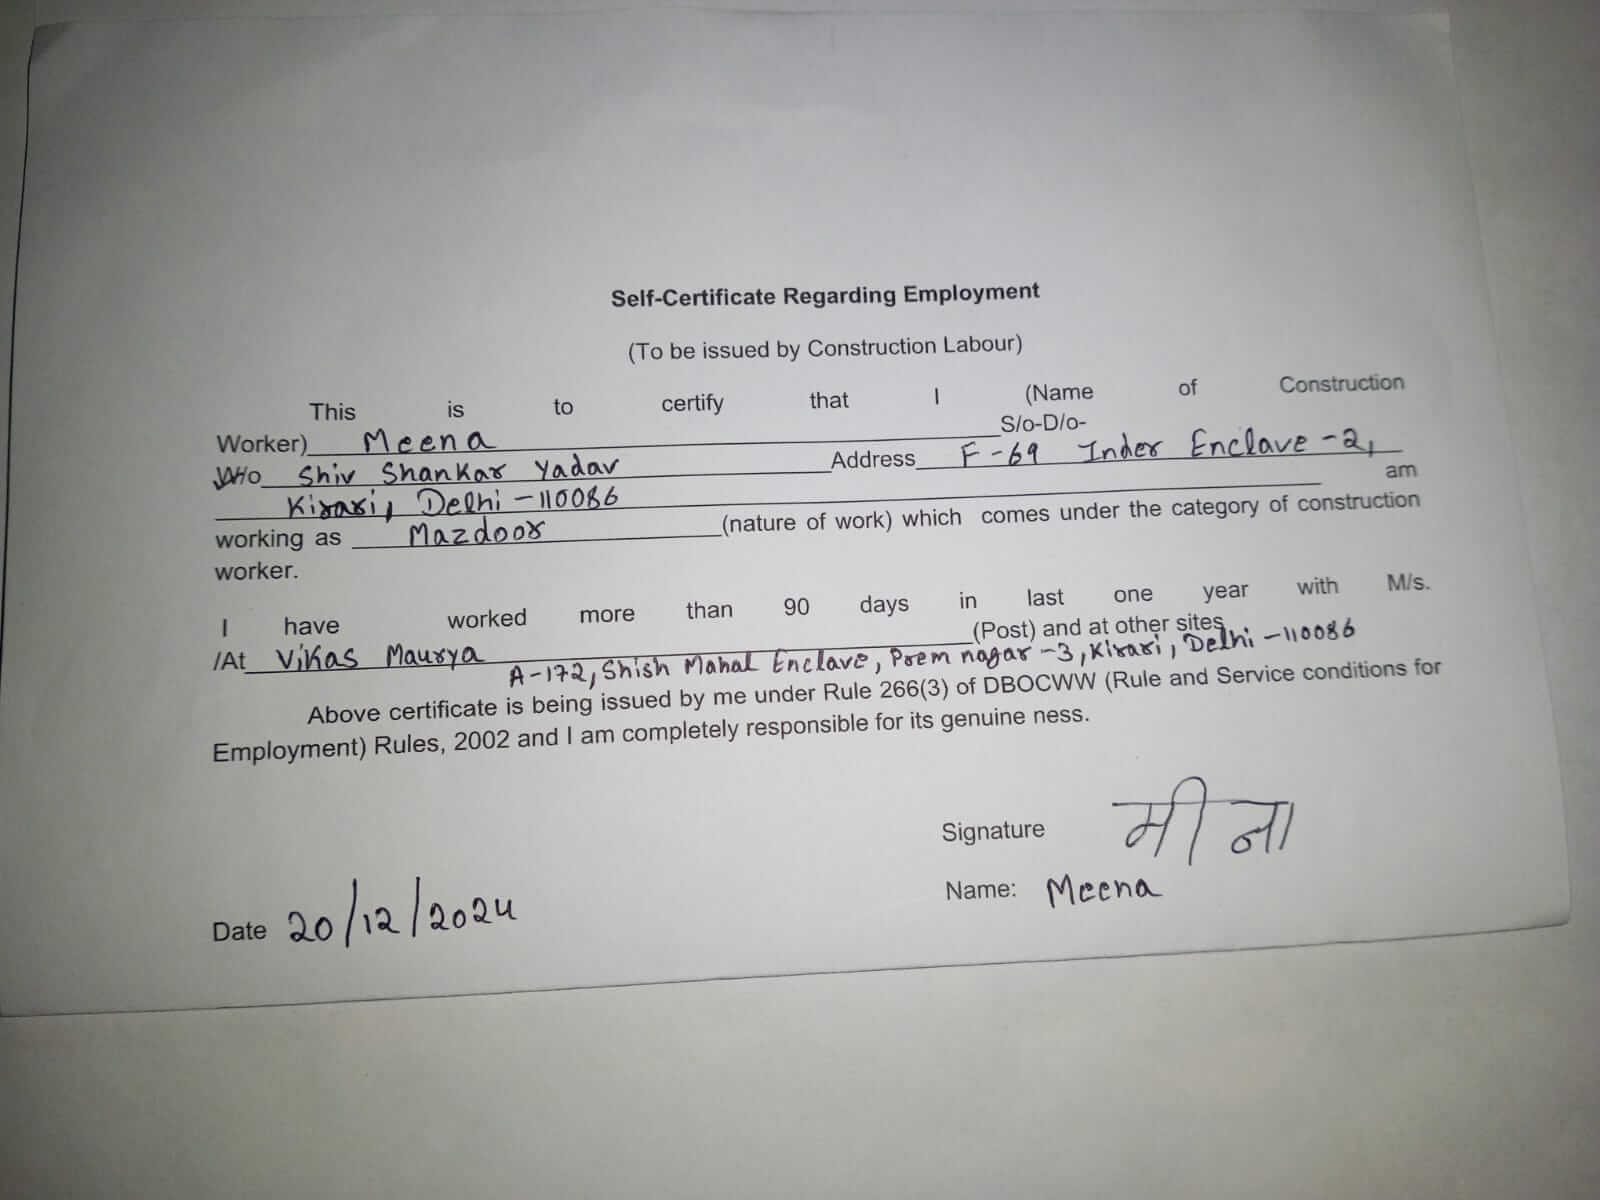 Self-Certificate Regarding Employment
(To be issued by Construction Labour)
This is to certify that I (Name of Construction
Worker) Meena S/o-D/o-
W/o Shiv Shankar Yadav Address F-69 Inder Enclave-2,
Kirari, Delhi-110086 am
working as Mazdoor (nature of work) which comes under the category of construction
worker.
I have worked more than 90 days in last one year with M/s.
/At Vikas Maurya (Post) and at other sites
A-172, Shish Mahal Enclave, Prem nagar-3, Kirari, Delhi-110086
Above certificate is being issued by me under Rule 266(3) of DBOCWW (Rule and Service conditions for
Employment) Rules, 2002 and I am completely responsible for its genuine ness.
Signature मीना
Name: Meena
Date 20/12/2024